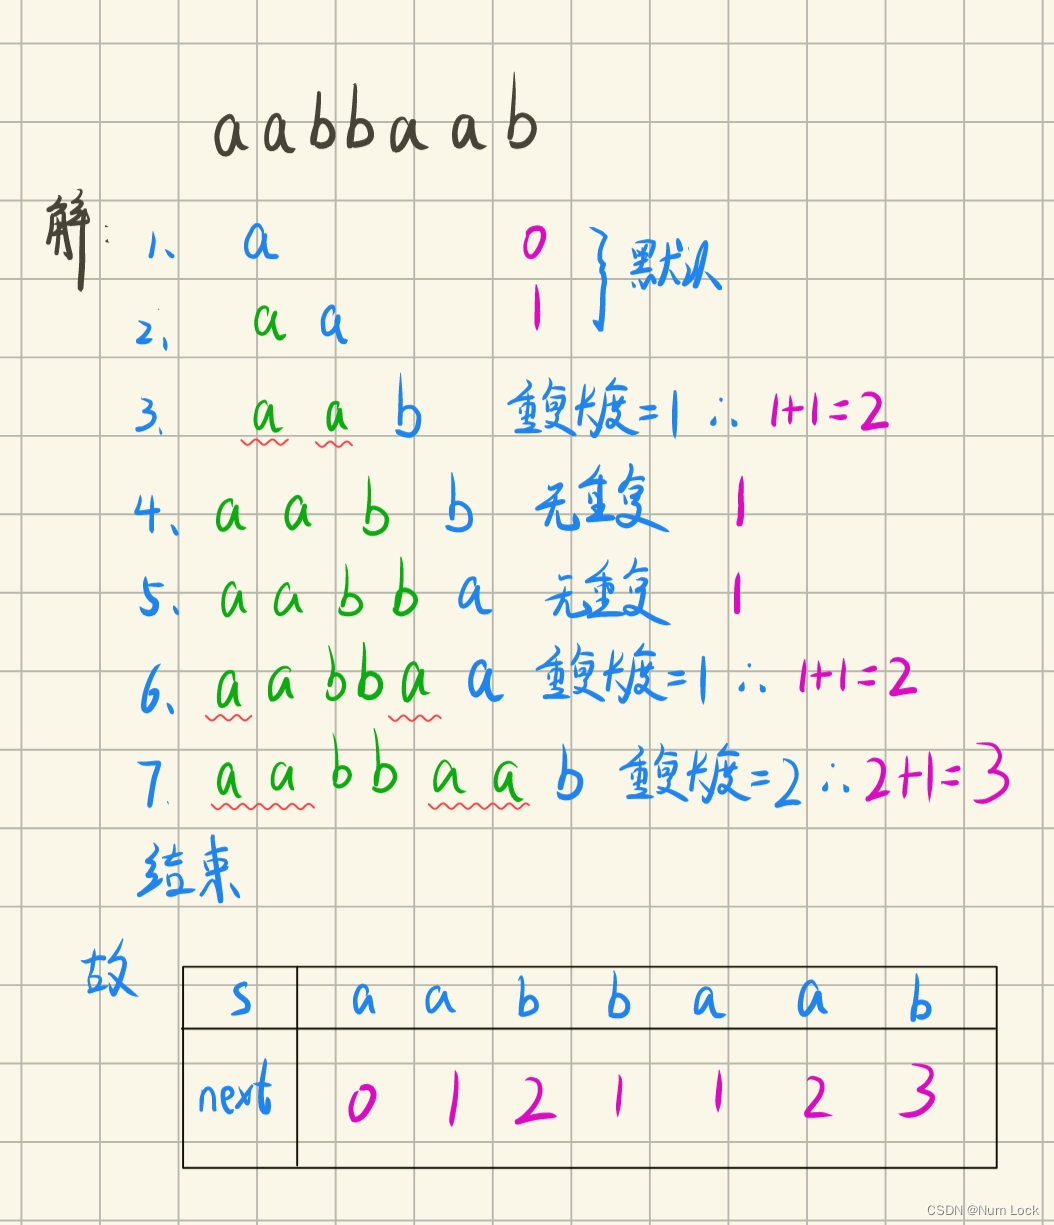 aabbaab
解:
1、 a 0
2、 a a 1
默认
3、 a a b 重复长度=1 ∴ 1+1=2
4、 a a b b 无重复 1
5、 a a b b a 无重复 1
6、 a a b b a a 重复长度=1 ∴ 1+1=2
7. a a b b a a b 重复长度=2 ∴ 2+1=3
结束
故
s a a b b a a b
next 0 1 2 1 1 2 3
CSDN @Num Lock